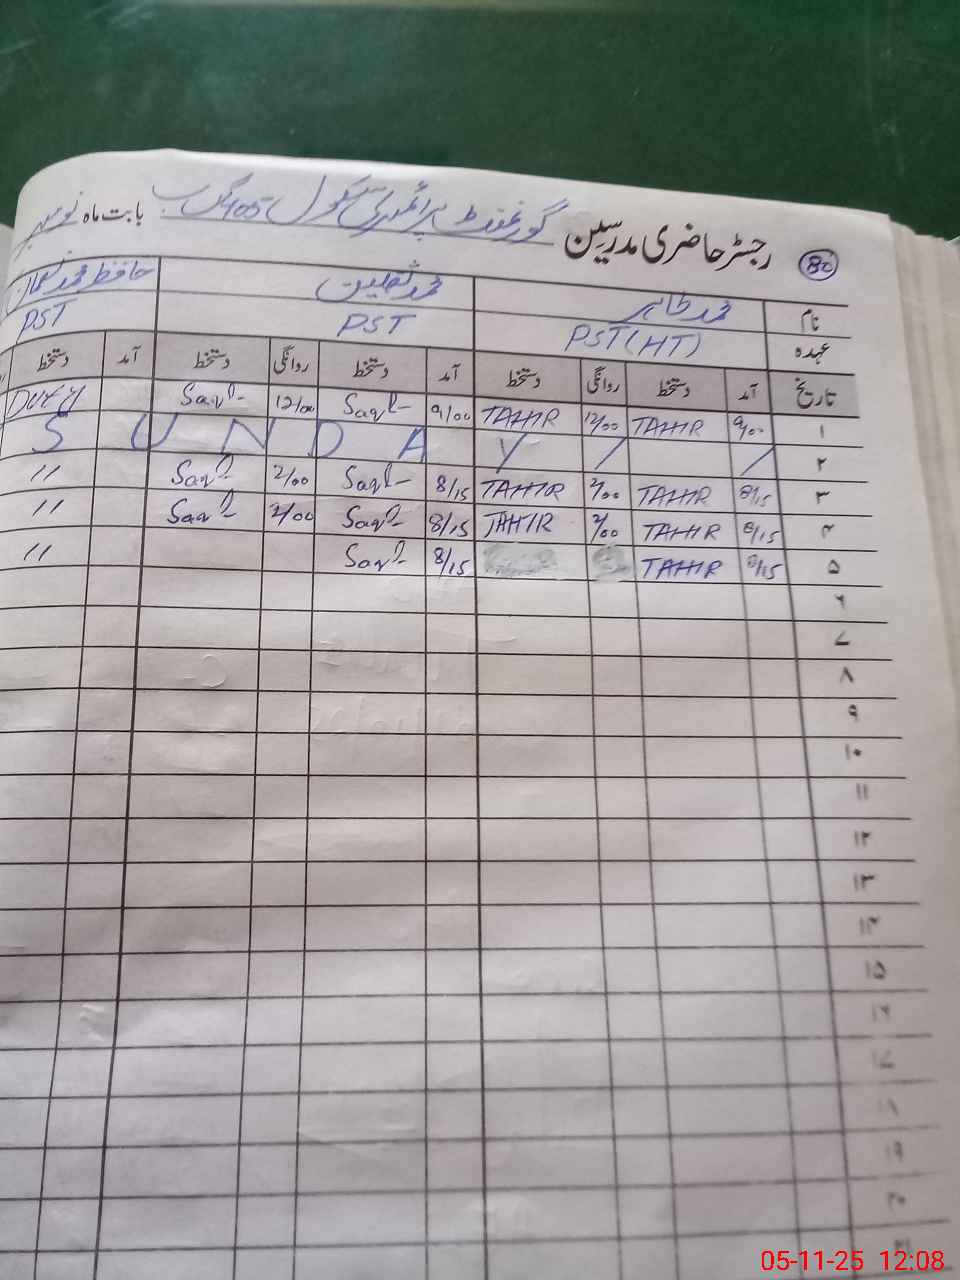 رجسٹر حاضری مدرسین گورنمنٹ پرائمری سکول 405 گ ب بابت ماہ نومبر
80
نام محمد طاہر محمد ثقلین حافظ محمد نعمان
عہدہ PST(HT) PST PST
تاریخ آمد دستخط روانگی دستخط آمد دستخط روانگی دستخط آمد دستخط
۱ 9/00 TAHIR 12/00 TAHIR 9/00 Saql 12/00 Saql DUTY
۲ SUNDAY / /
۳ 8/15 TAHIR 2/00 TAHIR 8/15 Saql 2/00 Saql "
۴ 8/15 TAHIR 2/00 TAHIR 8/15 Saql 2/00 Saql "
۵ 8/15 TAHIR 8/15 Saql "
۶
۷
۸
۹
۱۰
۱۱
۱۲
۱۳
۱۴
۱۵
۱۶
۱۷
۱۸
۱۹
۲۰
۲۱
05-11-25 12:08